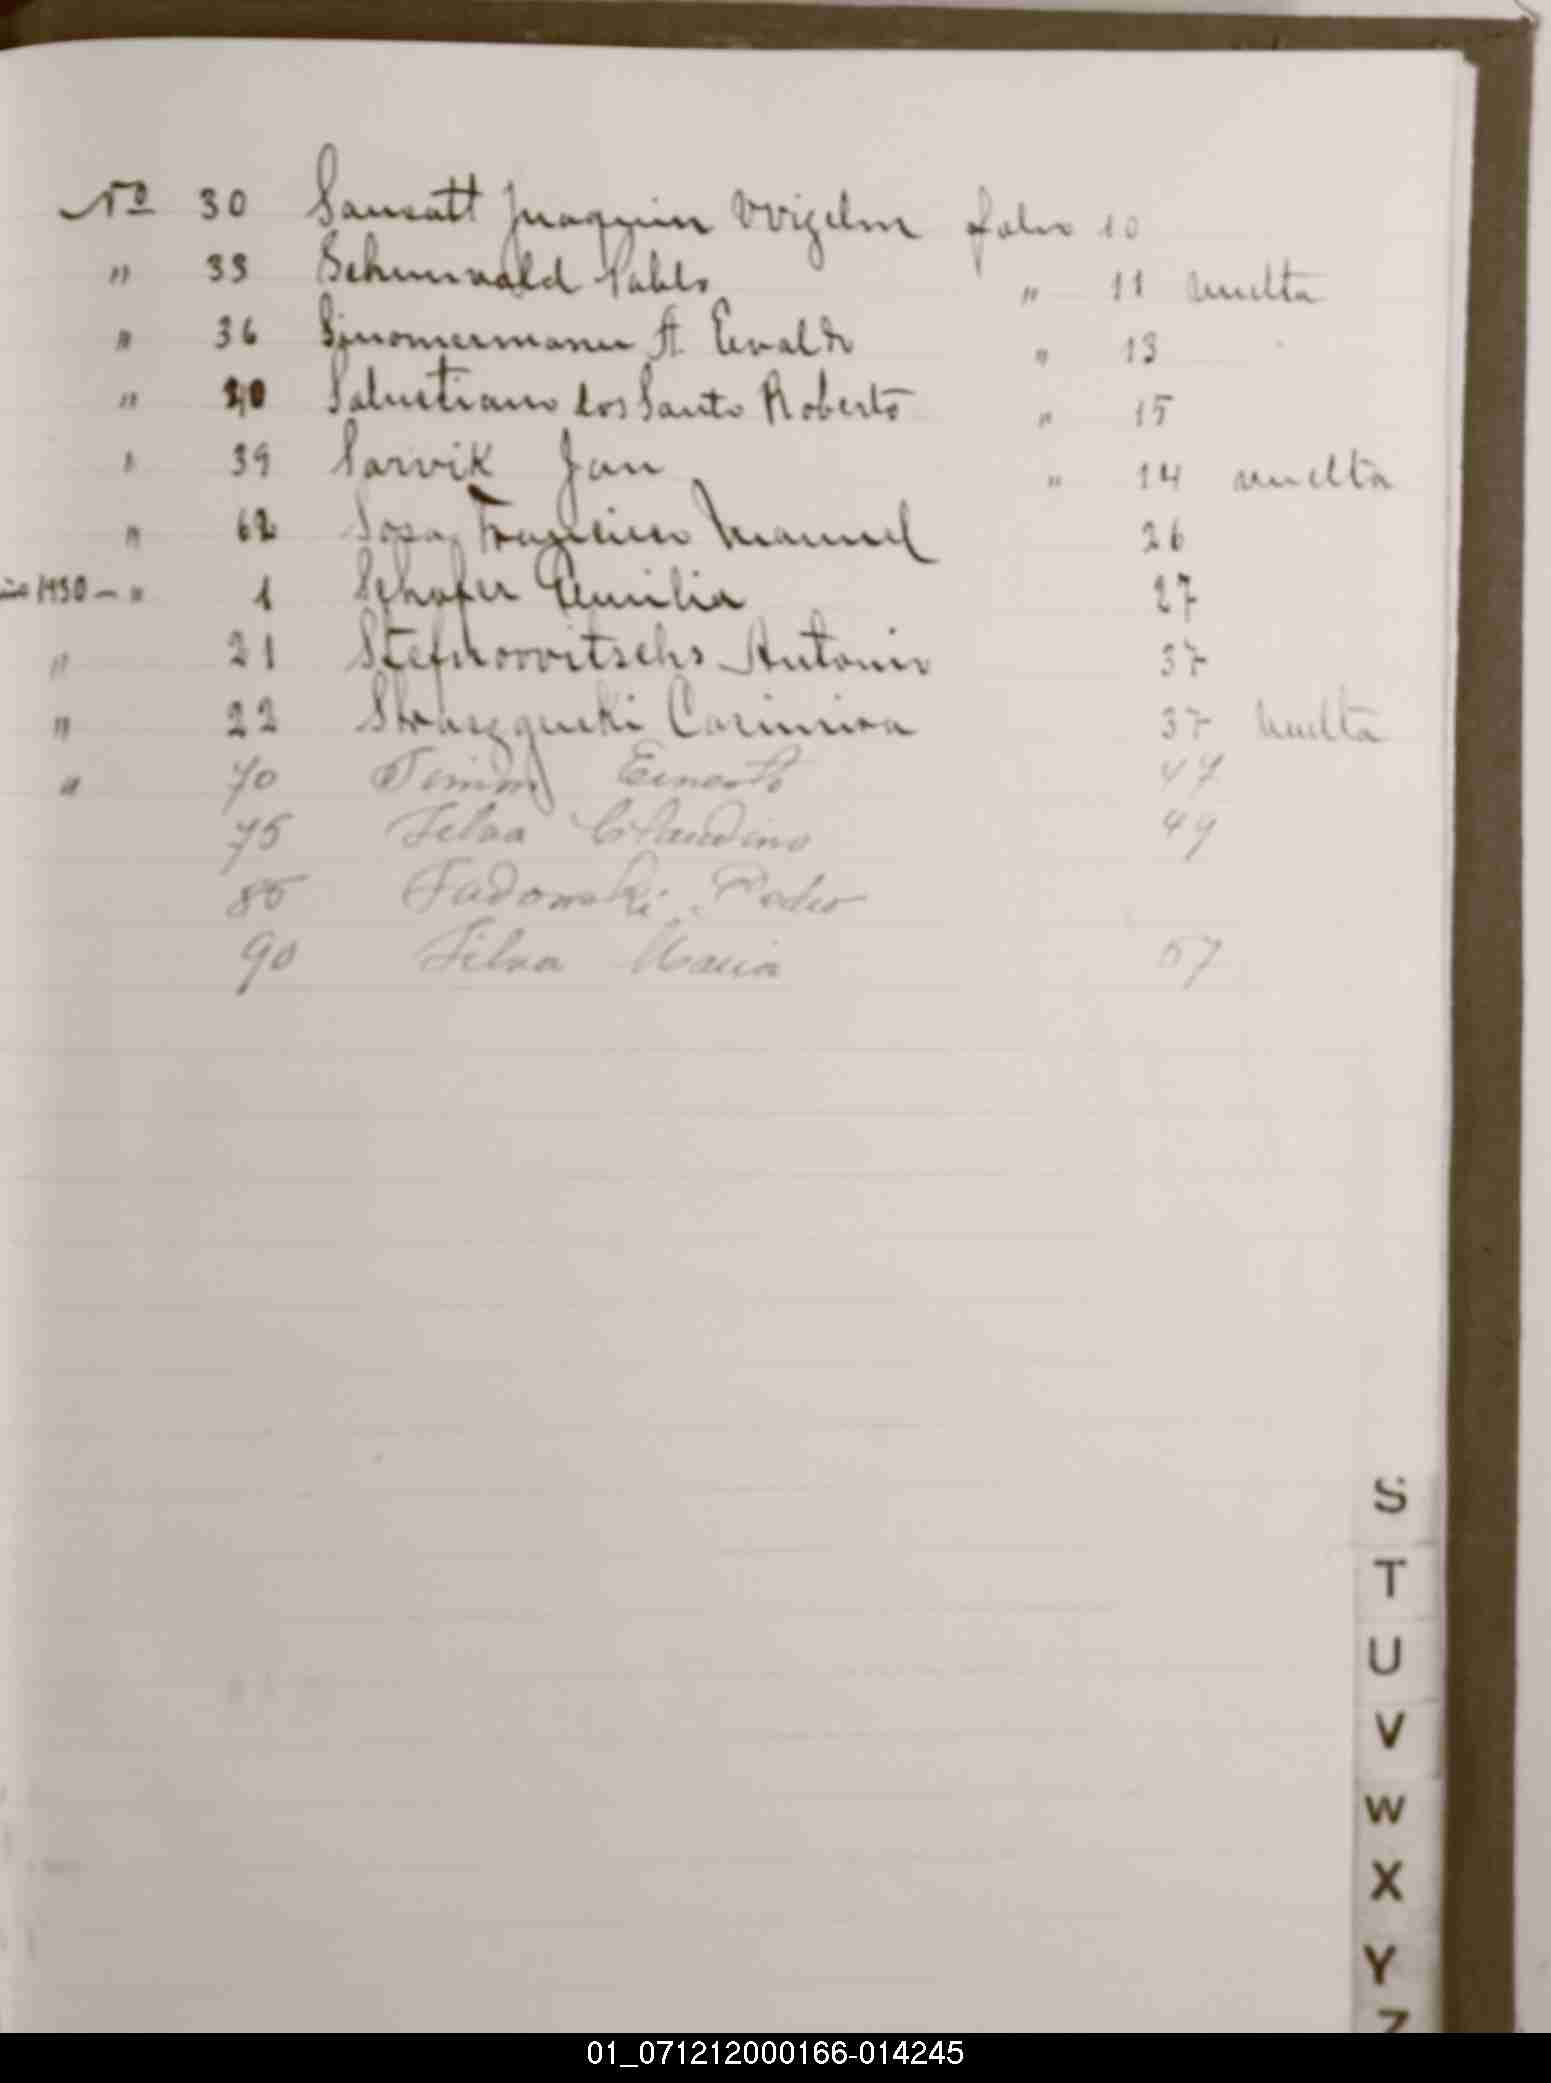 Nº 30 Sausatt Juaquin Wigelm folio 10
" 33 Schunwald Pablo " 11 vuelta
" 36 A. Evaldo " 13
" 40 Salustiano dos Santo Roberto " 15
" 39 Sarvik Jan " 14 vuelta
" 62 Sosa Francisco Manuel 26
año 1930 — " 1 Schafer Emilia 27
" 21 Stefnoovitschs Antonio 37
" 22 Casimira 37 vuelta
" 70 Simm Ernesto 47
75 Silva Claudino 49
85 Sadowski Pedro
90 Silva Maria 57
S
T
U
V
W
X
Y
Z
01_071212000166-014245